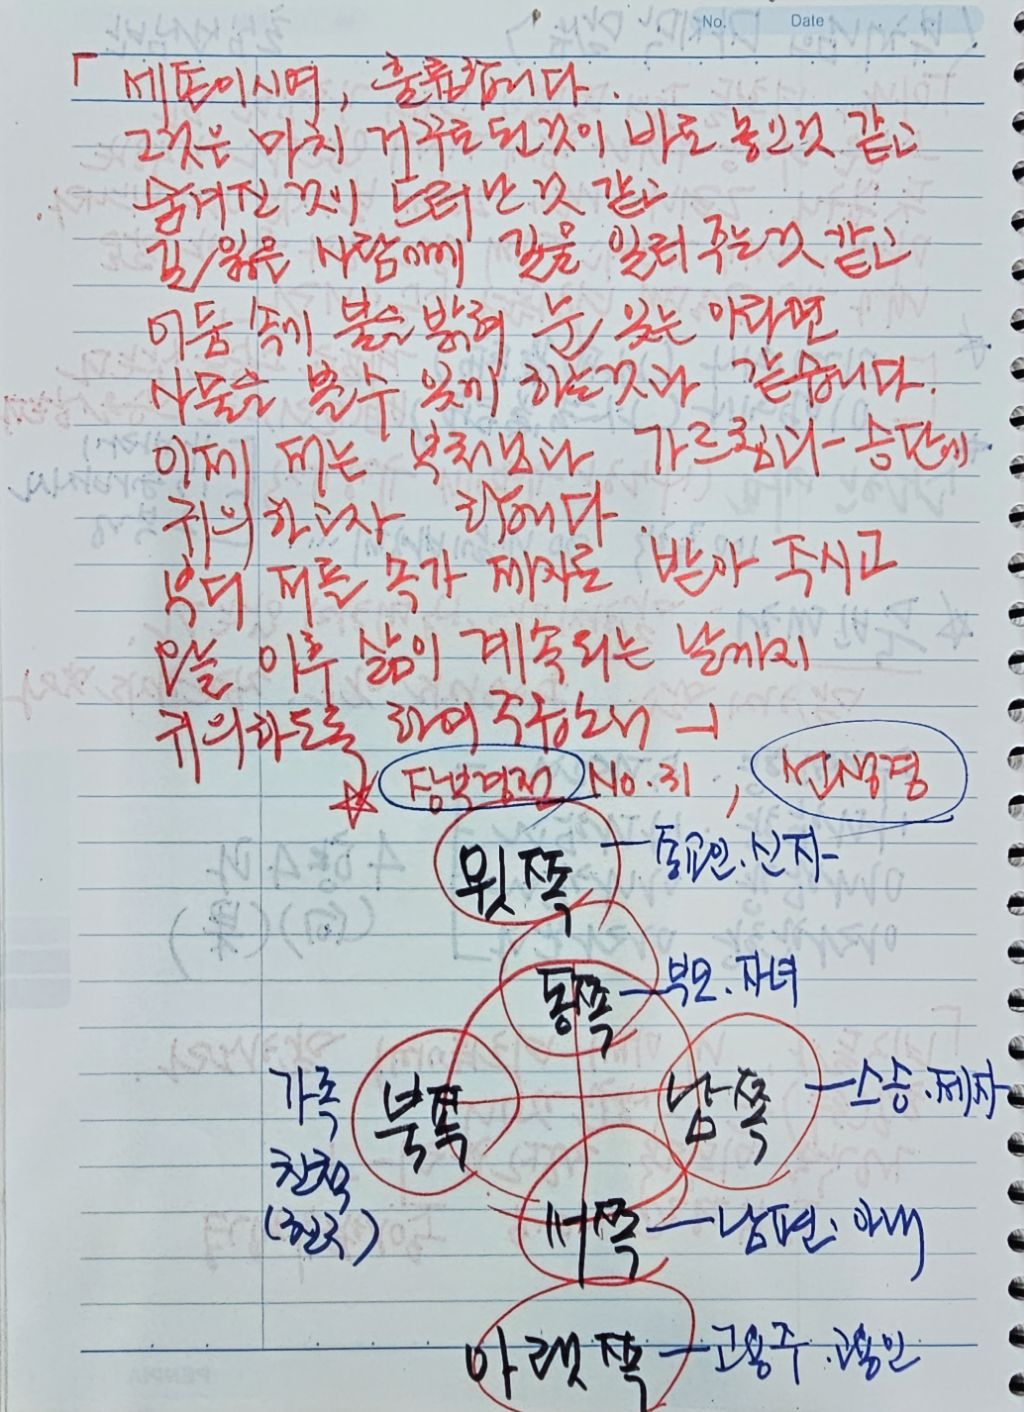 No. Date
「세존이시여, 훌륭합니다.
그것은 마치 거꾸로 된 것이 바로 놓인것 같고
숨겨진 것이 드러난 것 같고
길 잃은 사람에게 길을 일러 주는것 같고
어둠 속에 불을 밝혀 눈 있는 이라면
사물을 볼수 있게 하는것과 같습니다.
이제 저는 부처님과 가르침과 승단에
귀의 합니다
부디 저를 속가 제자로 받아 주시고
오늘 이후 삶이 계속되는 날까지
귀의하도록 하여 주옵소서」
장부경전 No.31, 선생경
윗쪽 종교인.신자
동쪽 부모.자녀
북쪽 남쪽 스승.제자
가족
친척
서쪽 남편.아내
아랫쪽 고용주.고용인